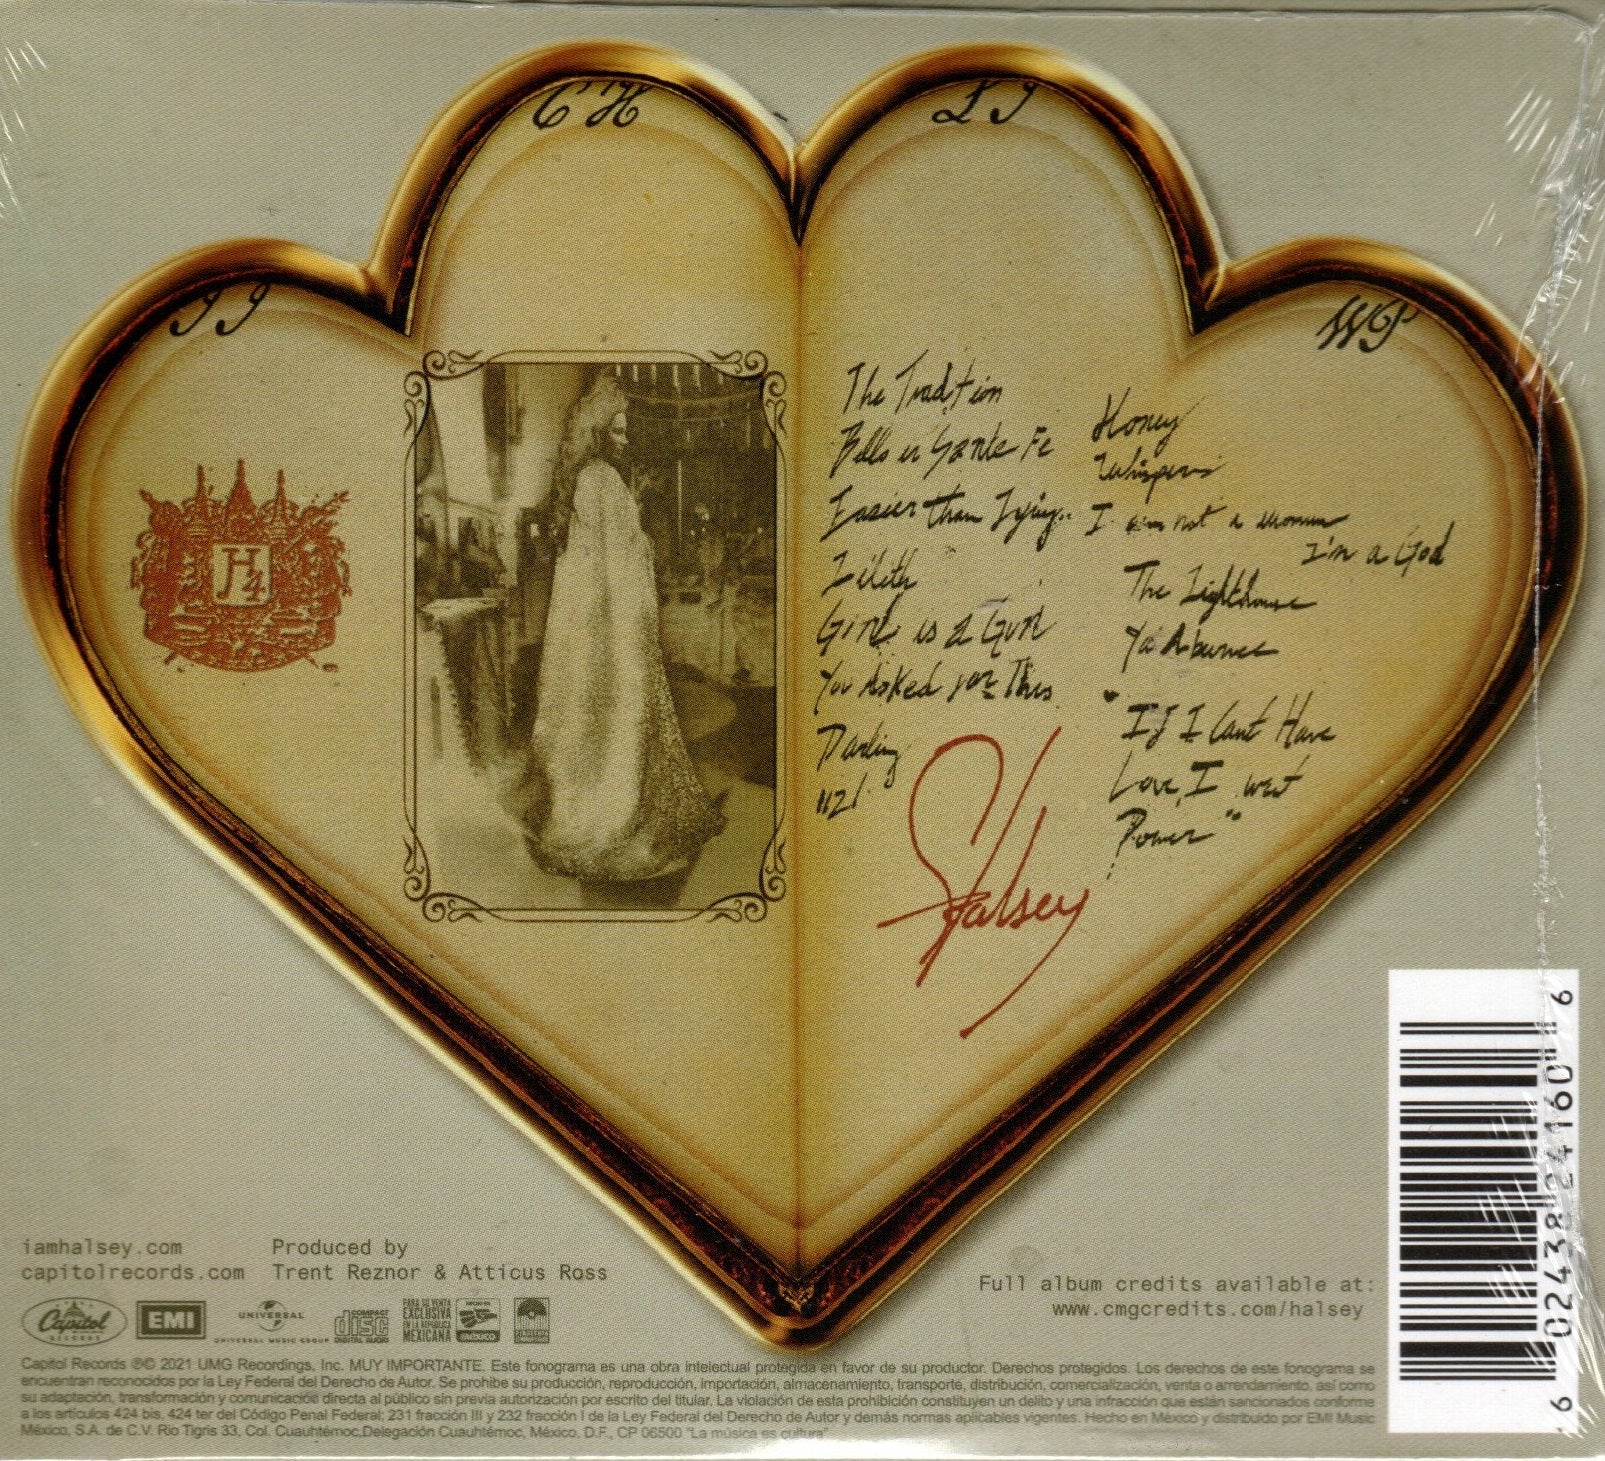 C H
L J
J J
W P
H
4
The Tradition
Bells in Sante Fe
Easier than Lying..
Lilith
Girl is a Gun
You Asked for This
Darling
1121
Honey
Whispers
I am not a woman
I'm a God
The Lighthouse
Ya'Aburnee
"If I Can't Have
Love, I want
Power"
Halsey
iamhalsey.com
capitolrecords.com
Produced by
Trent Reznor & Atticus Ross
Full album credits available at:
www.cmgcredits.com/halsey
Capitol
RECORDS
EMI
UNIVERSAL
UNIVERSAL MUSIC GROUP
COMPACT
disc
DIGITAL AUDIO
PARA SU VENTA
EXCLUSIVA
EN LA REPUBLICA
MEXICANA
Capitol Records ℗© 2021 UMG Recordings, Inc. MUY IMPORTANTE. Este fonograma es una obra intelectual protegida en favor de su productor. Derechos protegidos. Los derechos de este fonograma se
encuentran reconocidos por la Ley Federal del Derecho de Autor. Se prohibe su producción, reproducción, importación, almacenamiento, transporte, distribución, comercialización, venta o arrendamiento, así como
su adaptación, transformación y comunicación directa al público sin previa autorización por escrito del titular. La violación de esta prohibición constituyen un delito y una infracción que están sancionados conforme
a los artículos 424 bis, 424 ter del Código Penal Federal; 231 fracción III y 232 fracción I de la Ley Federal del Derecho de Autor y demás normas aplicables vigentes. Hecho en México y distribuido por EMI Music
México, S.A. de C.V. Río Tigris 33, Col. Cuauhtémoc,Delegación Cuauhtémoc, México, D.F., CP 06500 "La música es cultura"
6 02438 24160 6